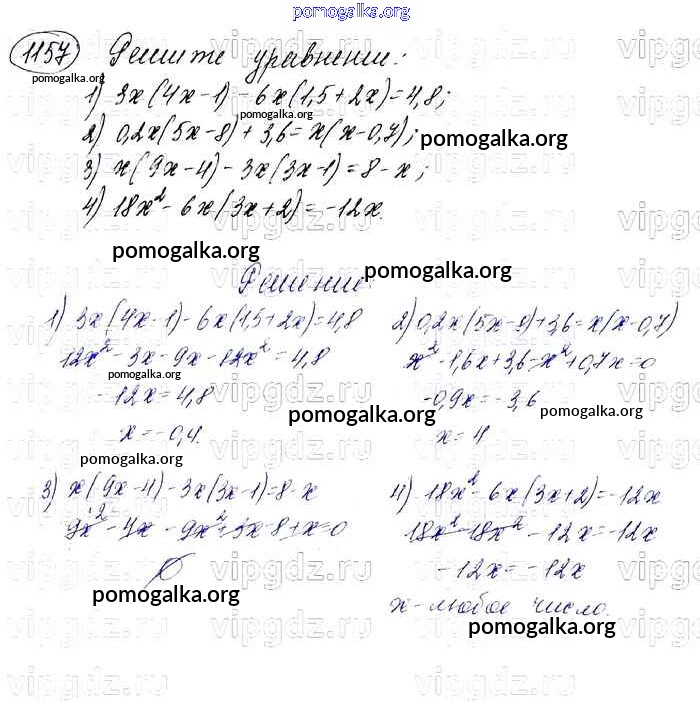 pomogalka.org
1157 Решите уравнения:
pomogalka.org
1) 3x(4x-1)-6x(1,5+2x)=4,8;
pomogalka.org
2) 0,2x(5x-8)+3,6=x(x-0,7);
pomogalka.org
3) x(9x-4)-3x(3x-1)=8-x;
4) 18x²-6x(3x+2)=-12x.
pomogalka.org
Решение:
pomogalka.org
1) 3x(4x-1)-6x(1,5+2x)=4,8
12x²-3x-9x-12x²=4,8
pomogalka.org
-12x=4,8
x=-0,4.
2) 0,2x(5x-8)+3,6=x(x-0,7)
x²-1,6x+3,6-x²+0,7x=0
-0,9x=-3,6
pomogalka.org
x=4
pomogalka.org
pomogalka.org
3) x(9x-4)-3x(3x-1)=8-x
9x²-4x-9x²+3x-8+x=0
∅
pomogalka.org
4) 18x²-6x(3x+2)=-12x
18x²-18x²-12x=-12x
-12x=-12x
x-любое число.
pomogalka.org
vipgdz.ru